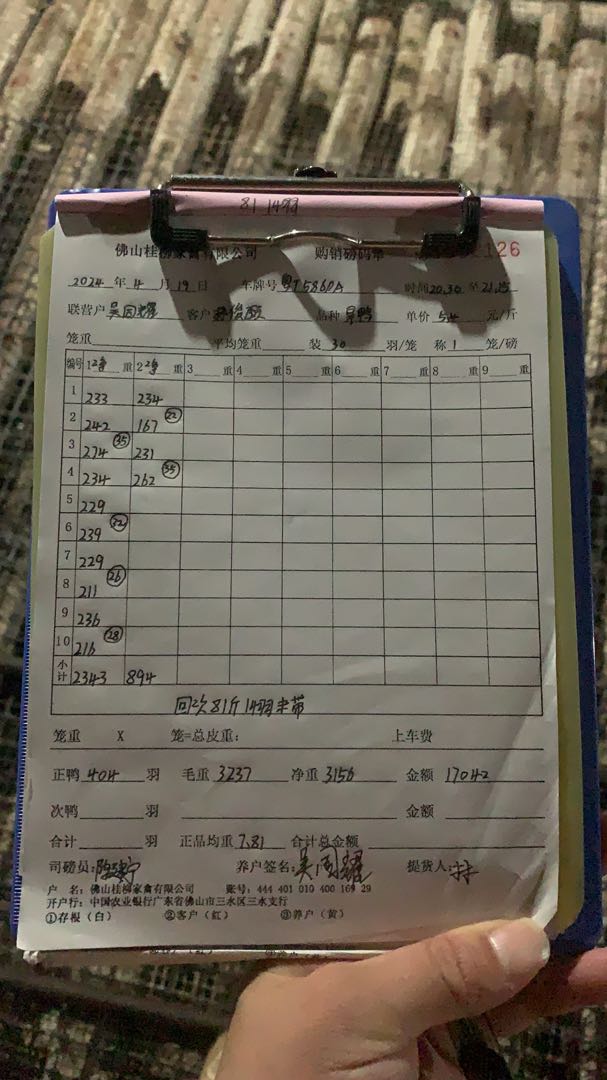 81 1493
佛山桂柳家禽有限公司 购销磅码单 126
2024 年 4 月 19 日 车牌号 粤T5860A 时间 20.30 至 21.15
联营户 客户 品种 旱鸭 单价 5.4 元/斤
笼重 平均笼重 装 30 羽/笼 称 1 笼/磅
编号 1 2笼 重 2 2笼 重 3 重 4 重 5 重 6 重 7 重 8 重 9 重
1 233 234
2 242 167 22
3 274 35 231
4 234 262 35
5 229
6 239 32
7 229
8 211 26
9 236
10 216 28
小计 2343 894
回次81斤14羽未带
笼重 X 笼=总皮重: 上车费
正鸭 404 羽 毛重 3237 净重 3156 金额 17042
次鸭 羽 金额
合计 羽 正品均重 7.81 合计总金额
司磅员: 养户签名: 提货人:
户 名: 佛山桂柳家禽有限公司 账号: 444 401 010 400 169 29
开户行: 中国农业银行广东省佛山市三水区三水支行
①存根(白) ②客户(红) ③养户(黄)